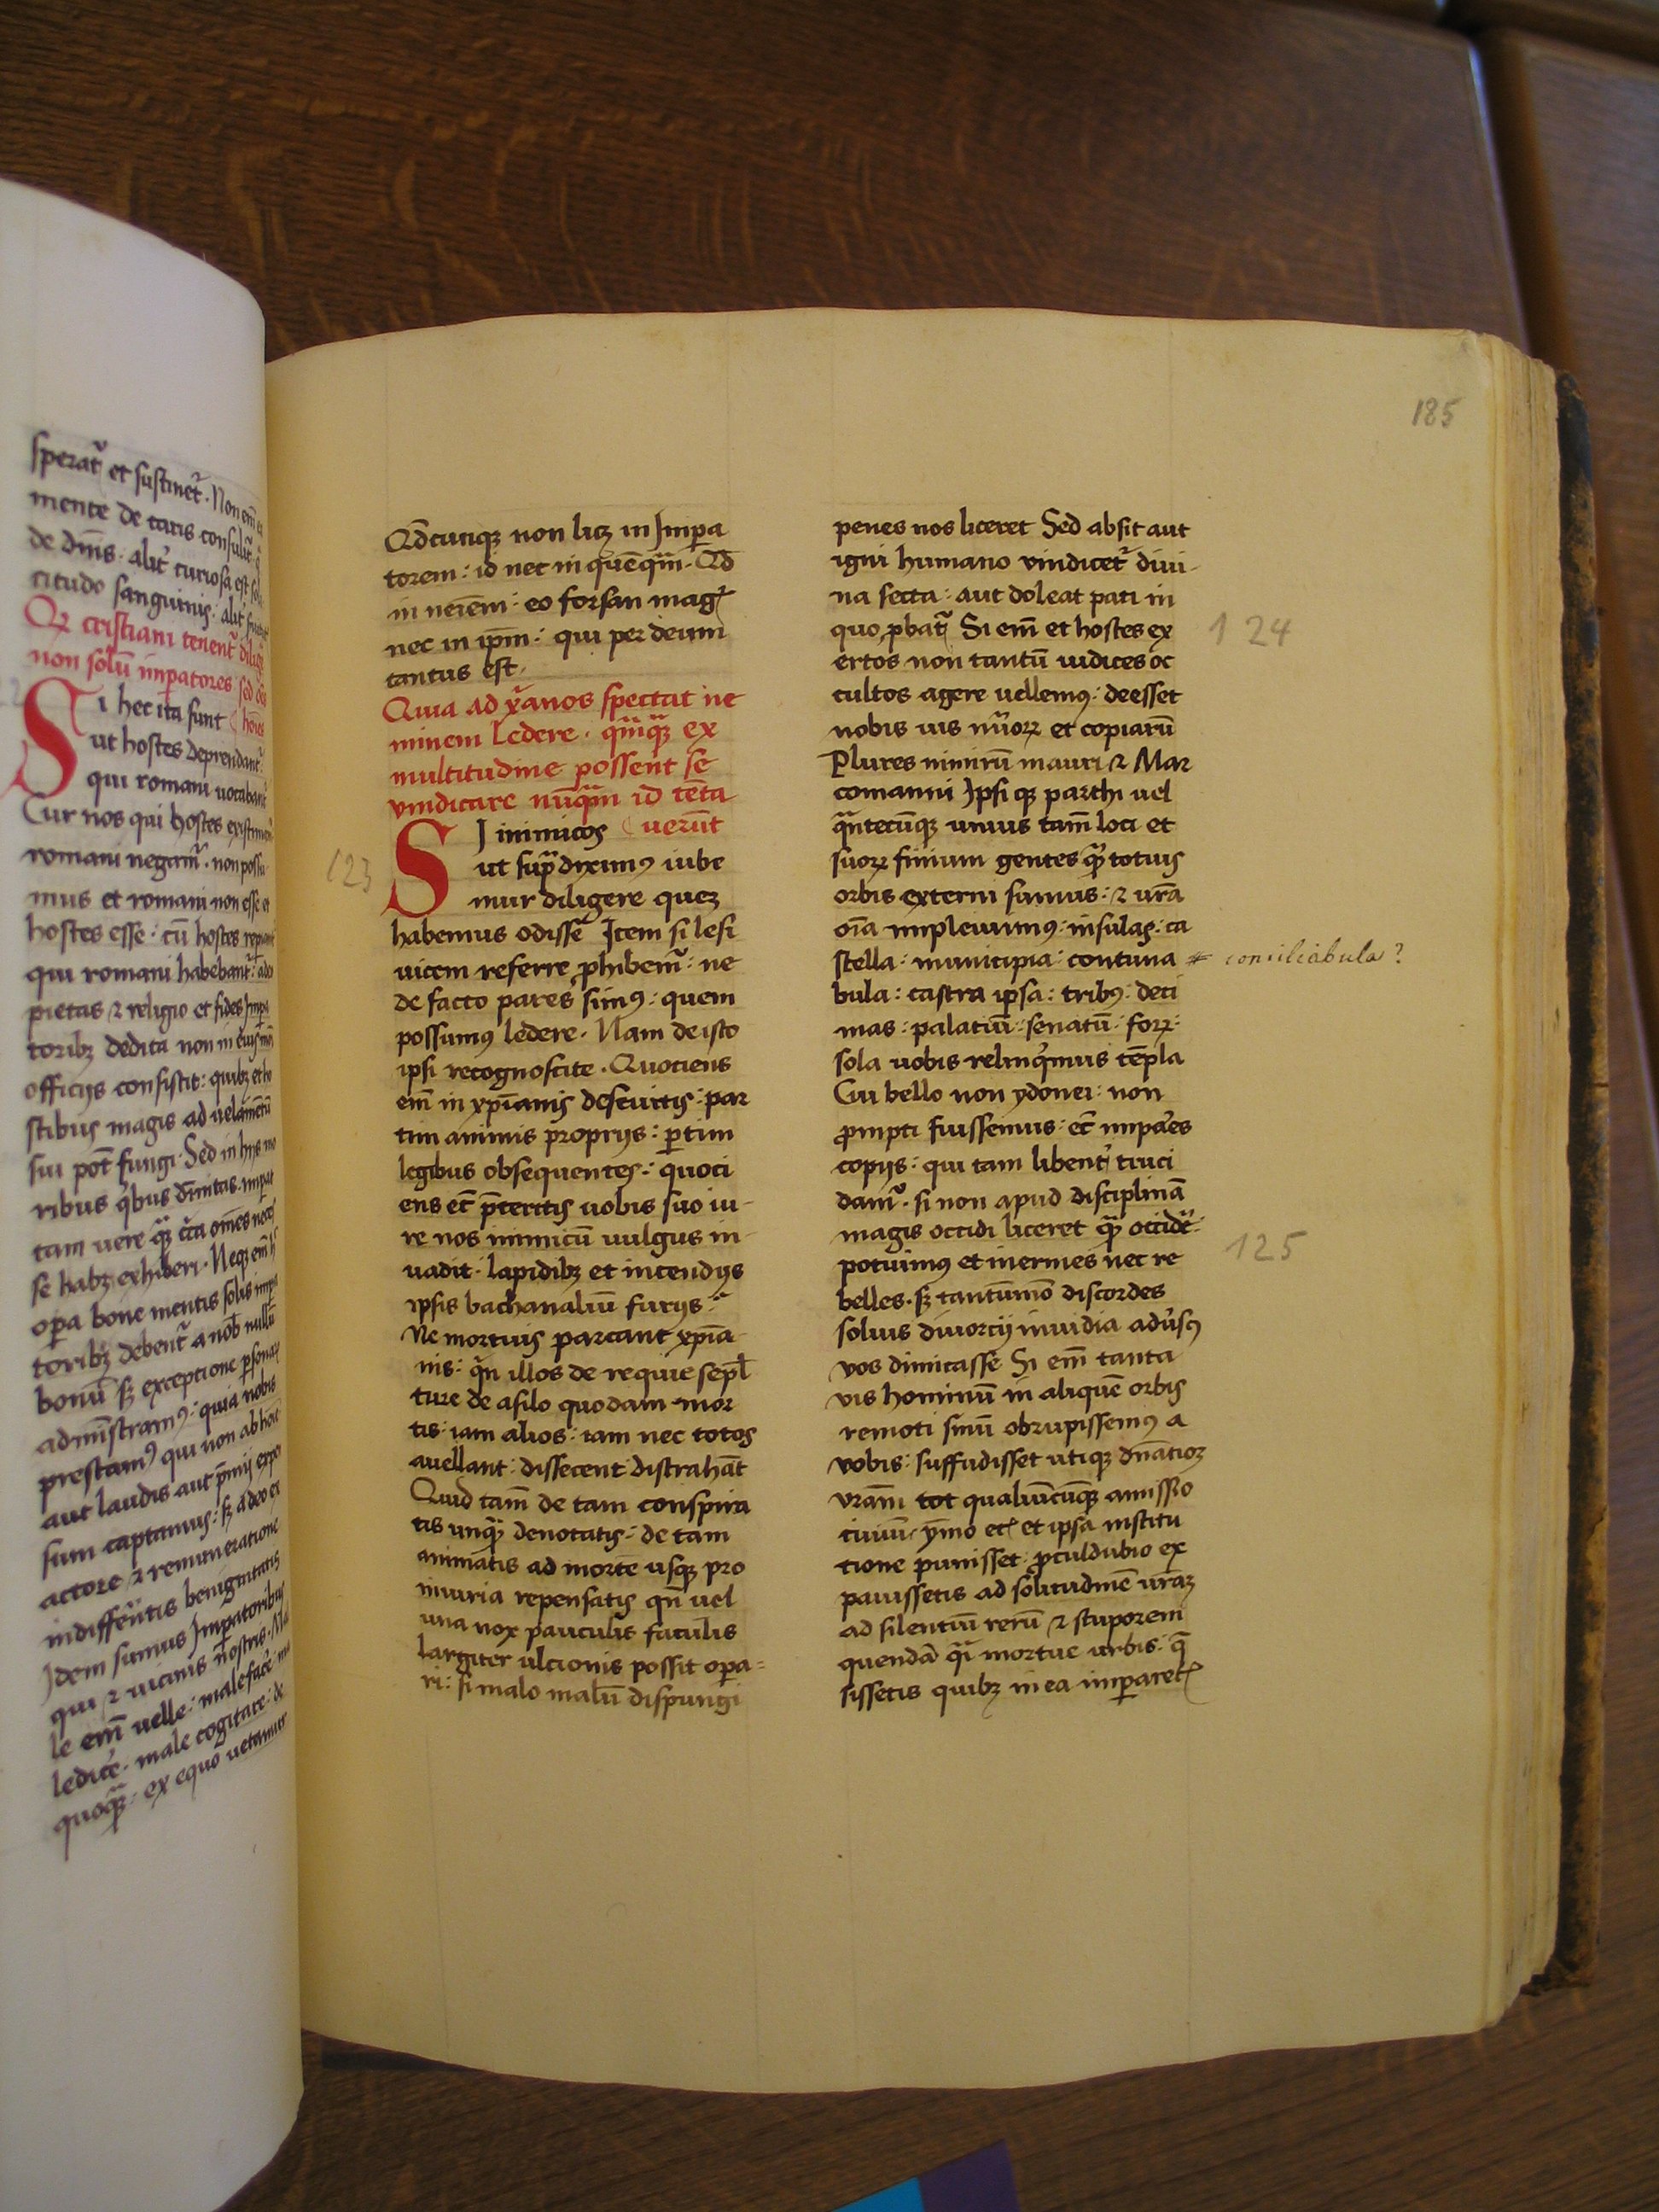 sperat᷑ et sustinet᷑ . Non em̄
mente de caris consulit᷑
de dn̄is . alit᷑ curiosa est
citudo sanguinis : alit᷑
Qr cristiani tenent᷑ dilig
non solū imꝑatores sed
Si hec ita sunt hoīes
ut hostes deprendant᷑
qui romani vocabant᷑
Cur nos qui hostes existima
romani negam᷑ . non possu
mus et romani non esse et
hostes esse : cū hostes
qui romani habebant᷑ :
pietas ⁊ religio et fides Imꝑa
toribꝫ dedita non in
officijs consistit : quibꝫ et ho
stibus magis ad velamētū
sui pōt fungi . Sed in hijs mo
ribus qͥbus diuinitas
tam vere qͣꝫ
se habꝫ exhiberi . Neqꝫ em̄
oꝑa bone mentis solis imꝑa
toribꝫ debent᷑ a nob̄ nullū
bonū sꝫ exceptione ꝑsonaꝝ
adm̄istramꝰ : quia nobis
prestamꝰ qui non ab hoīe
aut laudis aut p̄mij expe
sum captamus : sꝫ a deo ex
actore ⁊ remuneratione
indiffer̄ntis benignitatis
Idem sumus Imꝑatoribus
qui ⁊ vicinis nostris . Ma
le em̄ velle : male facͤ :
ledicͤ . male cogitare : de
quoqͣꝫ : ex equo vetamur
185
Qd̄cunqꝫ non licꝫ in Imꝑa
torem : id nec in quēqͣm̄ . Qd̄
in neīem : eo forsan mag᷑
nec in ip̄m : qui per deum
tantus est .
Quia ad xͬanos spectat ne
minem ledere . qͣnqͣꝫ ex
multitudine possent se
vindicare nūqͣm̄ id tēta
SI inimicos uerūt
ut supͣ diximꝰ iube
mur diligere quez
habemus odisse Item si lesi
vicem referre ꝓhibem᷑ : ne
de facto pares simꝰ : quem
possumꝰ ledere . Nam de isto
ipsi recognoscite . Quotiens
em̄ in xp̄ianis deseuitis : par
tim animis proprijs : ꝑtim
legibus obsequentes : quoci
ens ec̄ p̄teritis vobis suo iu-
re nos inimicū vulgus in-
vadit . lapidibꝫ et incendijs
ipsis bachanaliū furijs :
Ne mortuis parcant xp̄ia
nis : qͥn illos de requie sepl̄
ture de asilo quodam mor
tis : iam alios : iam nec totos
avellant : dissecent distrahāt
Quid tam̄ de tam conspira
tis unqͣꝫ denotatis : de tam
animatis ad mortē usqꝫ pro
iniuria repensatis qn̄ vel
una nox pauculis faculis
largiter ulcionis possit oꝑa=
ri : si malo malū dispungi
123
penes nos liceret Sed absit aut
igni humano vindicet᷑ diui-
na secta : aut doleat pati in
quo ꝓbat᷑ Si em̄ et hostes ex
ertos non tantū vidices oc
cultos agere vellemꝰ : deesset
nobis vis nūoꝝ et copiarū
Plures nimirū mauri ⁊ Mar
comanni Ipsi qꝫ parthi vel
qͣntecūqꝫ unius tam̄ loci et
suoꝝ finium gentes qͣꝫ totius
orbis externi sumus : ⁊ vr̄a
oīa impleuimꝰ : insulas : ca
stella : municipia : contuna
bula : castra ipsa : tribꝰ : deci
mas : palatiū : senatū : foꝝ :
sola vobis relinqͥmus tēpla
Cui bello non ydonei : non
ꝓmpti fuissemus : ec̄ impares
copijs : qui tam libent᷑ truci
dam᷑ . si non apud disciplinā
magis occidi liceret qͣꝫ occidē :
potuimꝰ et inermes nec re
belles . sꝫ tantūmō discordes
solius divorcij invidia adūsꝰ
vos dimicasse Si em̄ tanta
vis hominū in aliquē orbis
remoti sinū obrupissemꝰ a
vobis : suffudisset utiqꝫ dn̄atioꝫ
vram̄ tot qualiūcūqꝫ amissio
civiū : ymo ec᷑ et ipsa institu
tione punisset : ꝓculdubio ex
pavissetis ad solitudinē vraꝫ
ad silentiū rerū ⁊ stuporem
quendā qͣi mortue urbis : q̄
sissetis quibꝫ in ea imꝑaret᷑
124
# conciliabula ?
125